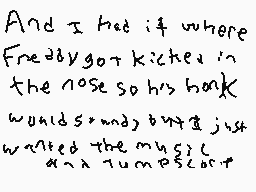 And I had it where
Freddy got kicked in
the nose so his honk
would sound but I just
wanted the music